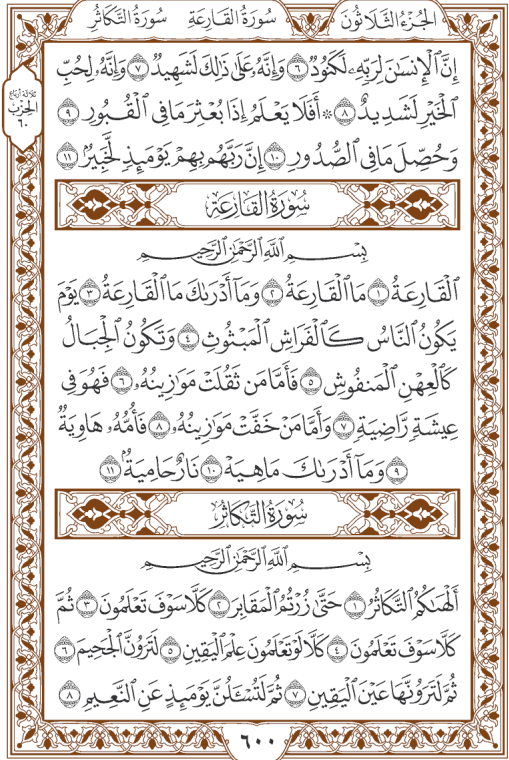 الجُزْءُ الثَّلَاثُونَ سُورَةُ القَارِعَةِ سُورَةُ التَّكَاثُرِ
إِنَّ ٱلْإِنسَٰنَ لِرَبِّهِۦ لَكَنُودٌ ٦ وَإِنَّهُۥ عَلَىٰ ذَٰلِكَ لَشَهِيدٌ ٧ وَإِنَّهُۥ لِحُبِّ
ٱلْخَيْرِ لَشَدِيدٌ ٨ ۞ أَفَلَا يَعْلَمُ إِذَا بُعْثِرَ مَا فِي ٱلْقُبُورِ ٩
وَحُصِّلَ مَا فِي ٱلصُّدُورِ ١٠ إِنَّ رَبَّهُم بِهِمْ يَوْمَئِذٍ لَّخَبِيرٌۢ ١١
ثلاثة أرباع
الحزب
٦٠
سُورَةُ القَارِعَةِ
بِسْمِ ٱللَّهِ ٱلرَّحْمَٰنِ ٱلرَّحِيمِ
ٱلْقَارِعَةُ ١ مَا ٱلْقَارِعَةُ ٢ وَمَآ أَدْرَىٰكَ مَا ٱلْقَارِعَةُ ٣ يَوْمَ
يَكُونُ ٱلنَّاسُ كَٱلْفَرَاشِ ٱلْمَبْثُوثِ ٤ وَتَكُونُ ٱلْجِبَالُ
كَٱلْعِهْنِ ٱلْمَنفُوشِ ٥ فَأَمَّا مَن ثَقُلَتْ مَوَٰزِينُهُۥ ٦ فَهُوَ فِي
عِيشَةٍ رَّاضِيَةٍ ٧ وَأَمَّا مَنْ خَفَّتْ مَوَٰزِينُهُۥ ٨ فَأُمُّهُۥ هَاوِيَةٌ
٩ وَمَآ أَدْرَىٰكَ مَا هِيَهْ ١٠ نَارٌ حَامِيَةٌۢ ١١
سُورَةُ التَّكَاثُرِ
بِسْمِ ٱللَّهِ ٱلرَّحْمَٰنِ ٱلرَّحِيمِ
أَلْهَىٰكُمُ ٱلتَّكَاثُرُ ١ حَتَّىٰ زُرْتُمُ ٱلْمَقَابِرَ ٢ كَلَّا سَوْفَ تَعْلَمُونَ ٣ ثُمَّ
كَلَّا سَوْفَ تَعْلَمُونَ ٤ كَلَّا لَوْ تَعْلَمُونَ عِلْمَ ٱلْيَقِينِ ٥ لَتَرَوُنَّ ٱلْجَحِيمَ ٦
ثُمَّ لَتَرَوُنَّهَا عَيْنَ ٱلْيَقِينِ ٧ ثُمَّ لَتُسْـَٔلُنَّ يَوْمَئِذٍ عَنِ ٱلنَّعِيمِ ٨
٦٠٠